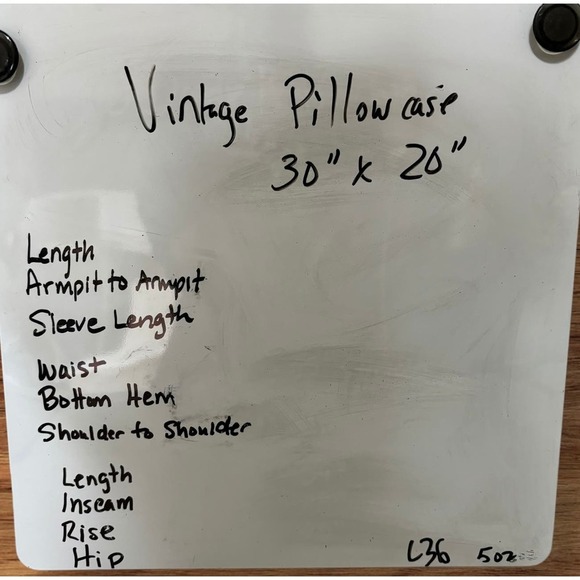 Vintage Pillowcase
30" x 20"
Length
Armpit to Armpit
Sleeve Length
Waist
Bottom Hem
Shoulder to Shoulder
Length
Inseam
Rise
Hip
L36 5oz